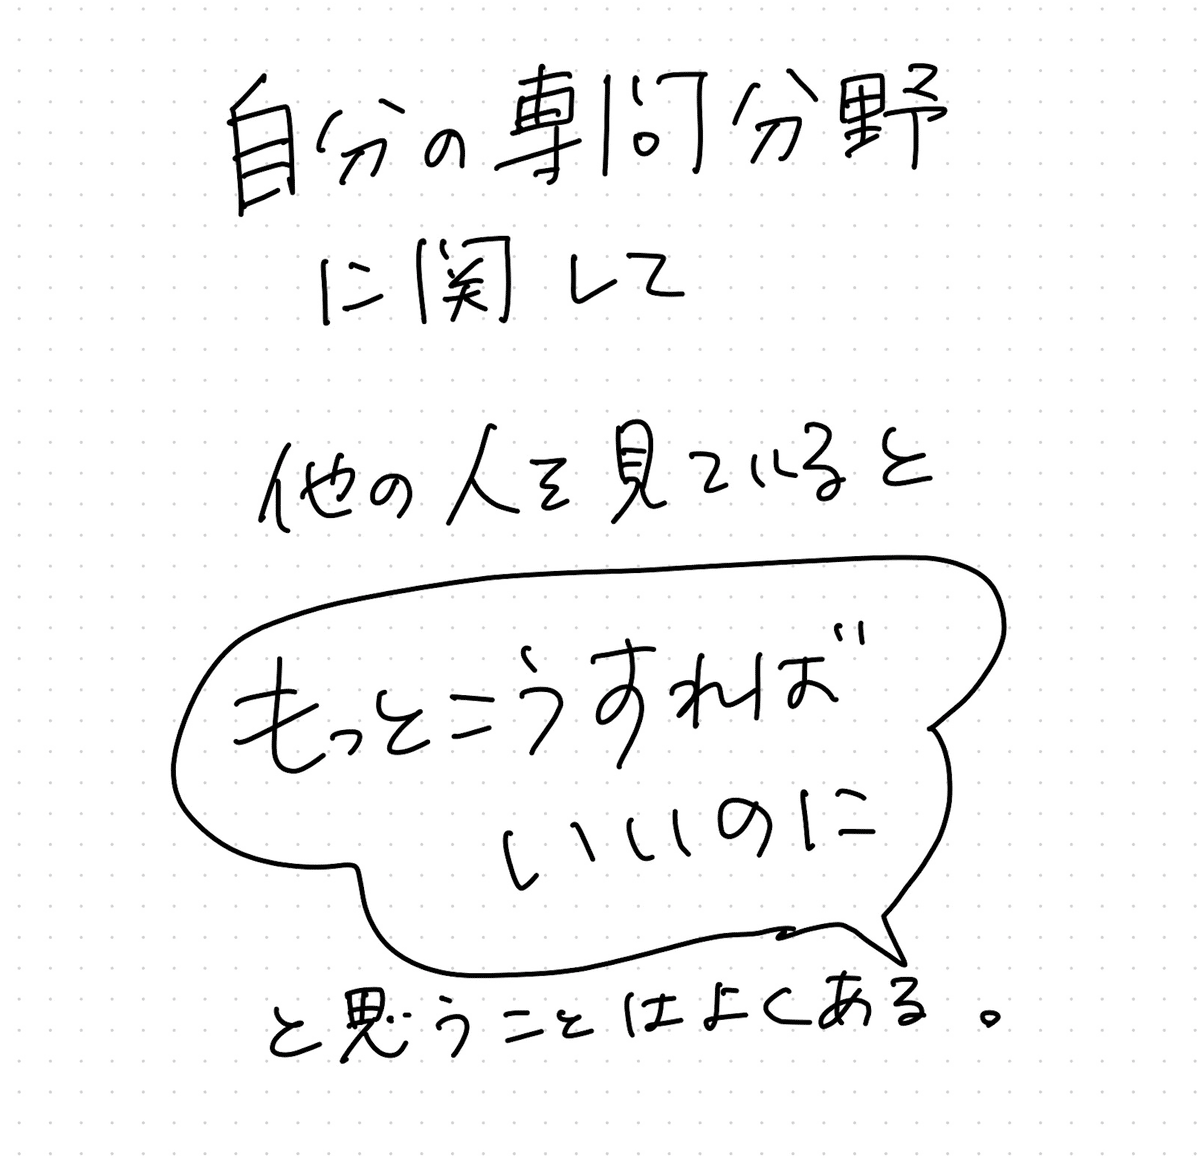 自分の専問分野
に関して
他の人を見ていると
もっとこうすれば
いいのに
と思うことはよくある。